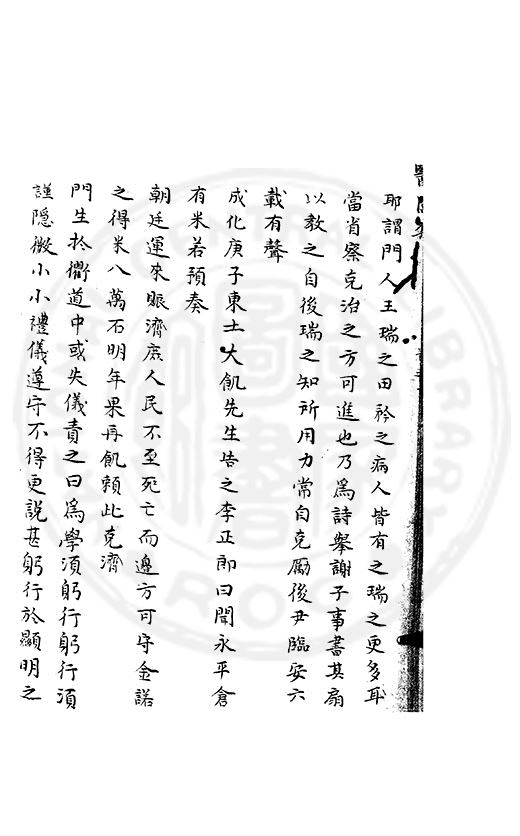 耶謂門人王瑞之曰矜之病人皆有之瑞之更多耳
當省察克治之方可進也乃為詩舉謝子事書其扇
以教之自後瑞之知所用力常自克厲後尹臨安六
載有聲
成化庚子東土大飢先生告之李正郎曰聞永平倉
有米若預奏
朝廷運來賑濟庶人民不至死亡而邊方可守金諾
之得米八萬石明年果再飢賴此克濟
門生於衢道中或失儀責之曰為學須躬行躬行須
謹隱微小小禮儀遵守不得更說甚躬行於顯明之